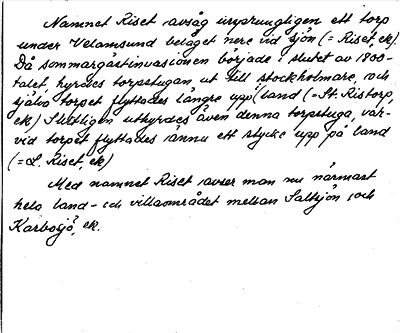 Namnet Riset avsåg ursprungligen ett torp
under Velamsund beläget nere vid sjön (= Riset, ek).
Då sommargästinvasionen började i slutet av 1800-
talet, hyrdes torpstugan ut till stockholmare, och
själva torpet flyttades längre upp i land (= St. Ristorp,
ek) Slutligen uthyrdes även denna torpstuga, var-
vid torpet flyttades ännu ett stycke upp på land
(= L. Riset, ek)
Med namnet Riset avser man nu närmast
hela land- och villaområdet mellan Saltsjön och
Karbosjö, ek.